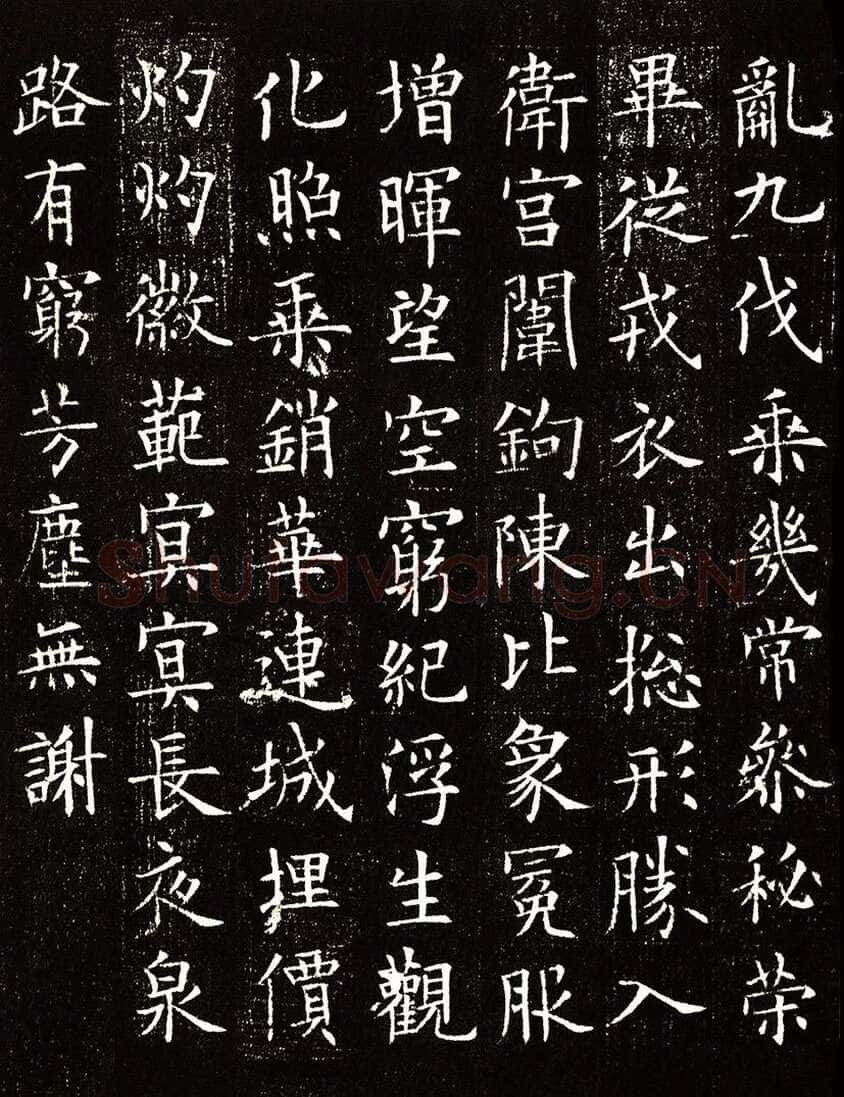 亂九伐乘幾常參秘榮
畢從戎衣出捴形勝入
衛宮闈鉤陳比象冕服
增暉望空窮紀浮生觀
化照乘銷華連城埋價
灼灼徽範冥冥長夜泉
路有窮芳塵無謝
Shufawang.CN